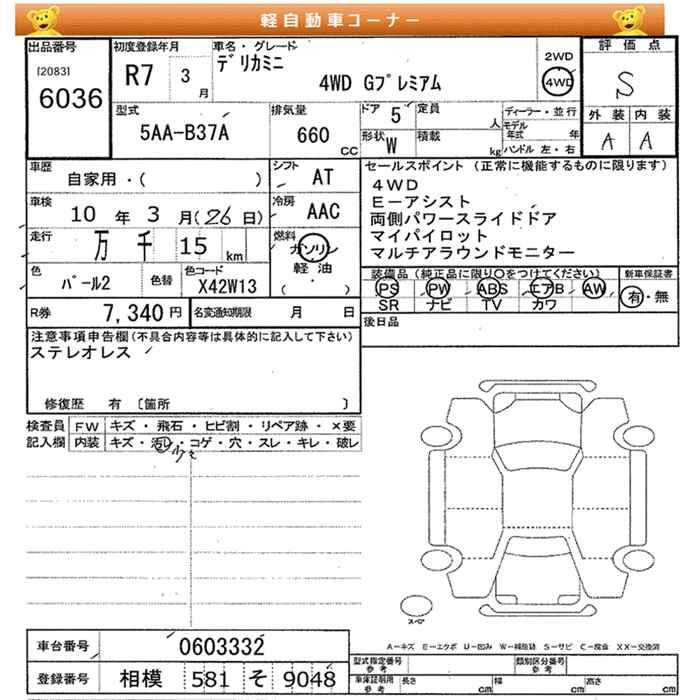 軽自動車コーナー
出品番号
[2083]
6036
初度登録年月
R7 3 月
車名・グレード
デリカミニ
4WD Gプレミアム
2WD
4WD
評価点
S
外装 内装
A A
型式
5AA-B37A
排気量
660 CC
ドア 5
形状 W
定員 人
積載 kg
ディーラー・並行
モデル年式 年
ハンドル 左・右
車歴
自家用・( )
シフト AT
車検 10 年 3 月(26日)
冷房 AAC
走行 万 千 15 km
燃料 ガソリン
軽油
( ・ )
色 パール2 色替
色コード X42W13
R券 7,340 円
名変通知期限 月 日
セールスポイント (正常に機能するものに限ります)
4WD
E-アシスト
両側パワースライドドア
マイパイロット
マルチアラウンドモニター
装備品(純正品に限り○をつけてください)
PS PW ABS エアB AW
SR ナビ TV カワ
新車保証書
有・無
後日品
注意事項申告欄(不具合内容等は具体的に記入して下さい)
ステレオレス
修復歴 有 〔箇所 〕
検査員記入欄
FW キズ・飛石・ヒビ割・リペア跡・×要
内装 キズ・汚レ・コゲ・穴・スレ・キレ・破レ
スペア
A-キズ E-エクボ U-凹み W-補修跡 S-サビ C-腐食 XX-交換済
車台番号 0603332
登録番号 相模 581 そ 9048
型式指定番号 参考
類別区分番号 参考
車庫証明用 参考 長さ cm 幅 cm 高さ cm